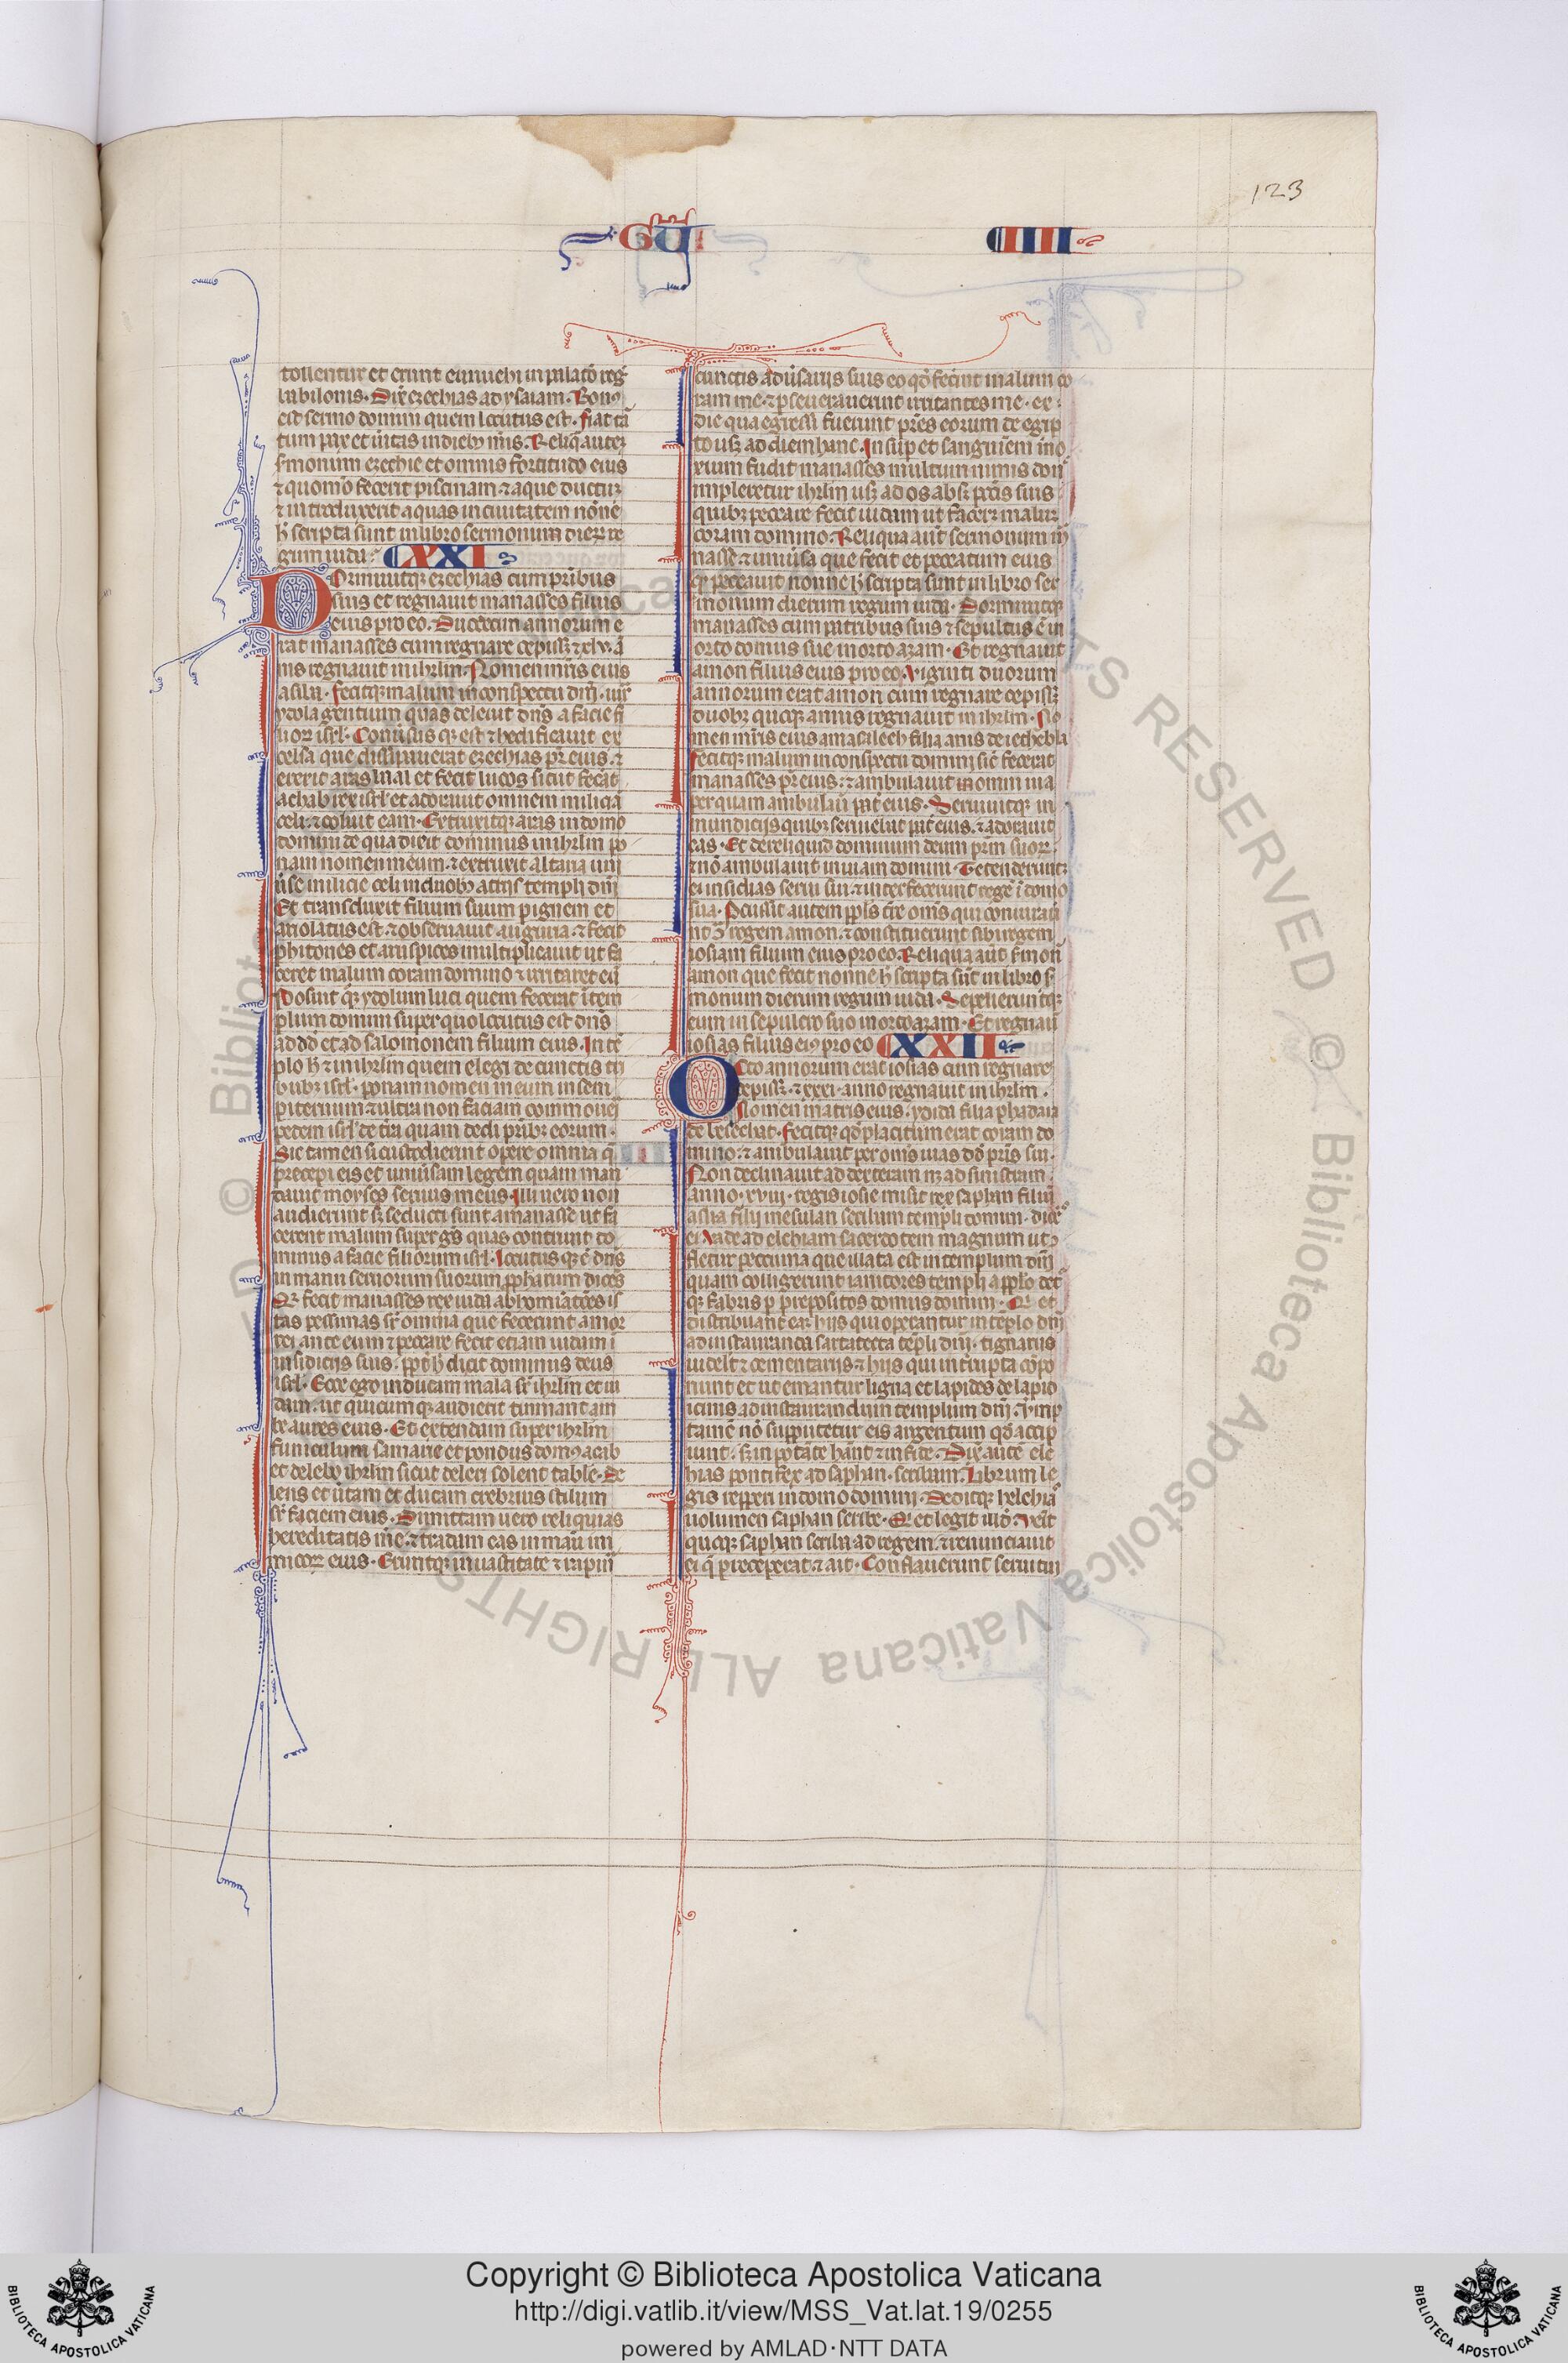 123
GU IIII
tollentur et erunt eunuchi in palatō reḡ
babilonis. Dix̄ ezechias ad ysaiam. Bonꝰ
est sermo domini quem locutus est. fiat tā
tum pax et ūitas in diebꝫ m̄is. Reliq̄ autez
s̄monum ezechie et omnis fortitudo eius
⁊ quomō fecerit piscinam ⁊ aque ductuꝫ
⁊ introduxerit aquas in ciuitatem nōne
h̄ scripta sunt in libro sermonum dieꝝ re
gum iuda. XXI
Dormiuitqꝫ ezechias cum pr̄ibus
suis et regnauit manasses filius
eius pro eo. Duodecim annorum e
rat manasses cum regnare cepissꝫ ⁊ lv. ā
nis regnauit in ihrl̄m. Nomen mr̄is eius
asiba. fecitqꝫ malum in conspectu dn̄i. iux̄
ydola gentium quas deleuit dn̄s a facie fi
lioꝝ isrl̄. Conūsus qꝫ est ⁊ hedificauit ex
celsa que dissipauerat ezechias pr̄ eius. ⁊
erexit aras baal et fecit lucos sicut fecāt
achab rex isrl̄ et adorauit omnem miliciā
celi. ⁊ coluit eam. Extruxitqꝫ aras in domo
domini de qua dixit dominus in ihrl̄m po
nam nomen meum. ⁊ extruxit altaria uni
ūse milicie celi in duobꝫ atrijs templi dn̄i
Et transduxit filium suum p ignem et
ariolatus est. ⁊ obseruauit auguria. ⁊ fecit
phitones et aruspices multiplicauit ut fa
ceret malum coram domino ⁊ irritaret eū
Posuit qꝫ ydolum luci quem fecerat ī tem
plum domini super quo locutus est dn̄s
ad dd̄ et ad salomonem filium eius. In tē
plo h̄ ⁊ in ihrl̄m quem elegi de cunctis tr̄i
bubꝫ isrl̄. ponam nomen meum in sem
piternum ⁊ ultra non faciam commoueī
pedem isrl̄ de tr̄a quam dedi pr̄ibꝫ eorum.
Sic tamen si custodierint opere omnia q̄
precepi eis et uniūsam legem quam man
dauit moyses seruus meus. Illi uero non
audierunt sꝫ seducti sunt a manasse ut fa
cerent malum super gn̄s quas contriuit do
minus a facie filiorum isrl̄. Locutus qꝫ ē dn̄s
in manu seruorum suorum ꝓphetarum dicēs
Qꝛ fecit manasses rex iuda abhominatōes is
tas pessimas sr̄ omnia que fecerunt amor
rei ante eum ⁊ peccare fecit etiam iudam ī
insidicijs suis. ꝓpt̄ h̄ dicit dominus deus
isrl̄. Ecce ego inducam mala sr̄ ihrl̄m et iu
dam. ut quicumqꝫ audierit tinniant am
be aures eius. Et extendam super ihrl̄m
funiculum samarie et pondus domꝰ acab
et delebo ihrl̄m sicut deleri solent table. De
lens et ūtam et ducam crebrius stilum
sr̄ faciem eius. Dimittam uero reliquias
hereditatis mē. ⁊ tradam eas in mau ini
micoꝝ eius. Eruntqꝫ in uastitate ⁊ rapin
cunctis adūsarijs suis eo qd̄ fecint malum co
ram me. ⁊ pseuerauerunt irritantes me. ex
die qua egressi fuerunt pr̄es eorum de egip
to usqꝫ ad diem hanc. Insup et sanguinem ino
xium fudit manasses multum nimis don̄
impleretur ihrl̄m usqꝫ ad os absqꝫ pctīs suis
quibꝫ peccare fecit iudam ut facerꝫ maluꝫ
coram domino. Reliqua aut̄ sermonum m̄
nasse. ⁊ uniūsa que fecit et peccatum eius
qd̄ peccauit nonne h̄ scripta sunt in libro ser
monum dierum regum iuda. Dormiuitqꝫ
manasses cum patribus suis ⁊ sepultus ē in
orto domus sue in orto azam. Et regnauit
amon filius eius pro eo. Viginti duorum
annorum erat amon cum regnare cepissꝫ
duobꝫ quoqꝫ annis regnauit in ihrl̄m. No
men mr̄is eius amasalech filia arus de iethebla
fecitqꝫ malum in conspectu domini sic̄ fecerat
manasses pr̄ eius: ⁊ ambulauit in omni uia
per quam ambulaū pat̄ eius. Seruiuitqꝫ in
mundicijs quibꝫ seruiebat pat̄ eius. ⁊ adorauit
eas. Et dereliquid dominum deum pr̄m suoꝝ
⁊ nō ambulauit in uiam domini. Tetenderuntqꝫ
ei insidias serui sui. ⁊ interfecerunt regē ī domo
sua. Pcussit autem ppl̄s tr̄e om̄is qui coniuraū
nt ↄ̄ regem amon. ⁊ constituerunt sibi regem
iosiam filium eius pro eo. Reliqua aut̄ s̄mon̄
amon que fecit nonne h̄ scripta sūt in libro s̄
monum dierum regum iuda. Sepelieruntqꝫ
eum in sepulcro suo in orto azam. Et regnaū
iosias filius eiꝰ pro eo XXII
Octo annorum erat iosias cum regnare
cepissꝫ. ⁊ xxxi. anno regnauit in ihrl̄m.
Nomen matris eius. ydida filia phadaia
de besechat. fecitqꝫ qd̄ placitum erat coram do
mino. ⁊ ambulauit per om̄is uias dd̄ pr̄is sui.
Non declinauit ad dexteram uꝉ ad sinistram
anno. xviij. regis iosie misit rex saphan filiū
asya filij mesulan scribam templi domini. dicēs
ei Vade ad elchiam sacerdotem magnum ut ↄ
fletur peccunia que illata est in templum dn̄i
quam colligerunt ianitores templi a pplo det̄
qꝫ fabris p prepositos domus domini. Qꝛ et
distribuant eaꝫ hijs qui operantur in tēplo dn̄i
ad instauranda sartatecta tēpli dn̄i. tignarijs
uidelꝫ ⁊ cementarijs. ⁊ hijs qui int̄rupta cōpo
nunt et ut emantur ligna et lapides de lapid
icinis ad instaurandum templum dn̄i. Verump
tamē nō supputetur eis argentum qd̄ accip
iunt. sꝫ in ptāte habāt ⁊ in fide. Dix̄ autē elc
hias pontifex ad saphan. scribam. Librum le
gis repperi in domo domini. Deditqꝫ helchiā
uolumen saphan scribe. Qꝛ et legit illd̄. Venit
quoqꝫ saphan scriba ad regem. ⁊ renunciauit
ei q̄ preceperat ⁊ ait. Conflauerunt serui tui
ALL RIGHTS RESERVED © Biblioteca Apostolica Vaticana
Copyright © Biblioteca Apostolica Vaticana
http://digi.vatlib.it/view/MSS_Vat.lat.19/0255
powered by AMLAD·NTT DATA
BIBLIOTECA APOSTOLICA VATICANA
BIBLIOTECA APOSTOLICA VATICANA